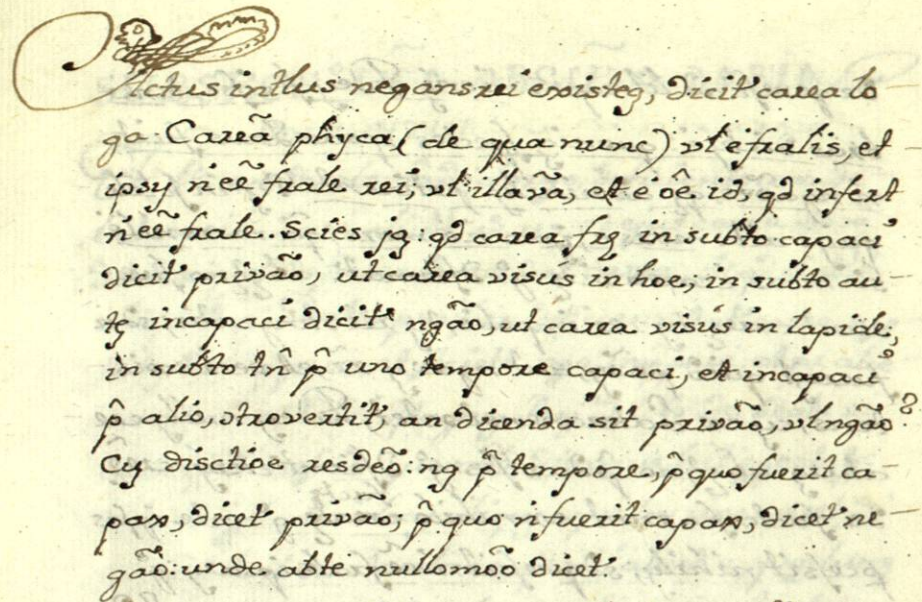 Actus intlus negans rei existeʒ, dicit' carea lo
ga. Careã phyca (de qua nunc) vl é fralis, et
ipsȷ ñ eẽ frale rei; vl illavã, et é oê id, qd infert
ñ eẽ frale.. Scies jʒ: qd carea frʒ in subto capaci
dicit' privão, ut carea visus in hoe; in subto au
tʒ incapaci dicit' ngão, ut carea visus in lapide;
in subto tñ p̂ uno tempore capaci, et incapaci
p̂ alio, ɔtrovertit', an dicenda sit privão, vl ngão?
Cuȷ disctioe resdeõ: nʒ p̂ tempore, p̂ quo fuerit ca
pax, dicet' privão; p̂ quo ñ fuerit capax, dicet' ne
gão: unde abte nullomõo dicet'